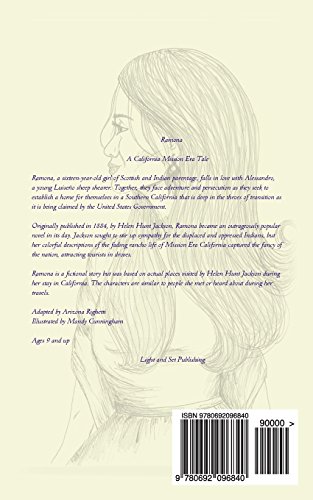 Ramona
A California Mission Era Tale
Ramona, a sixteen-year-old girl of Scottish and Indian parentage, falls in love with Alessandro,
a young Luiseño sheep shearer. Together, they face adventure and persecution as they seek to
establish a home for themselves in a Southern California that is deep in the throes of transition as
it is being claimed by the United States Government.
Originally published in 1884, by Helen Hunt Jackson, Ramona became an outrageously popular
novel in its day. Jackson sought to stir up sympathy for the displaced and oppressed Indians, but
her colorful descriptions of the fading rancho life of Mission Era California captured the fancy of
the nation, attracting tourists in droves.
Ramona is a fictional story but was based on actual places visited by Helen Hunt Jackson during
her stay in California. The characters are similar to people she met or heard about during her
travels.
Adapted by Arizona Righetti
Illustrated by Mandy Cunningham
Ages 9 and up
Light and Set Publishing
ISBN 9780692096840
90000 >
9 780692 096840